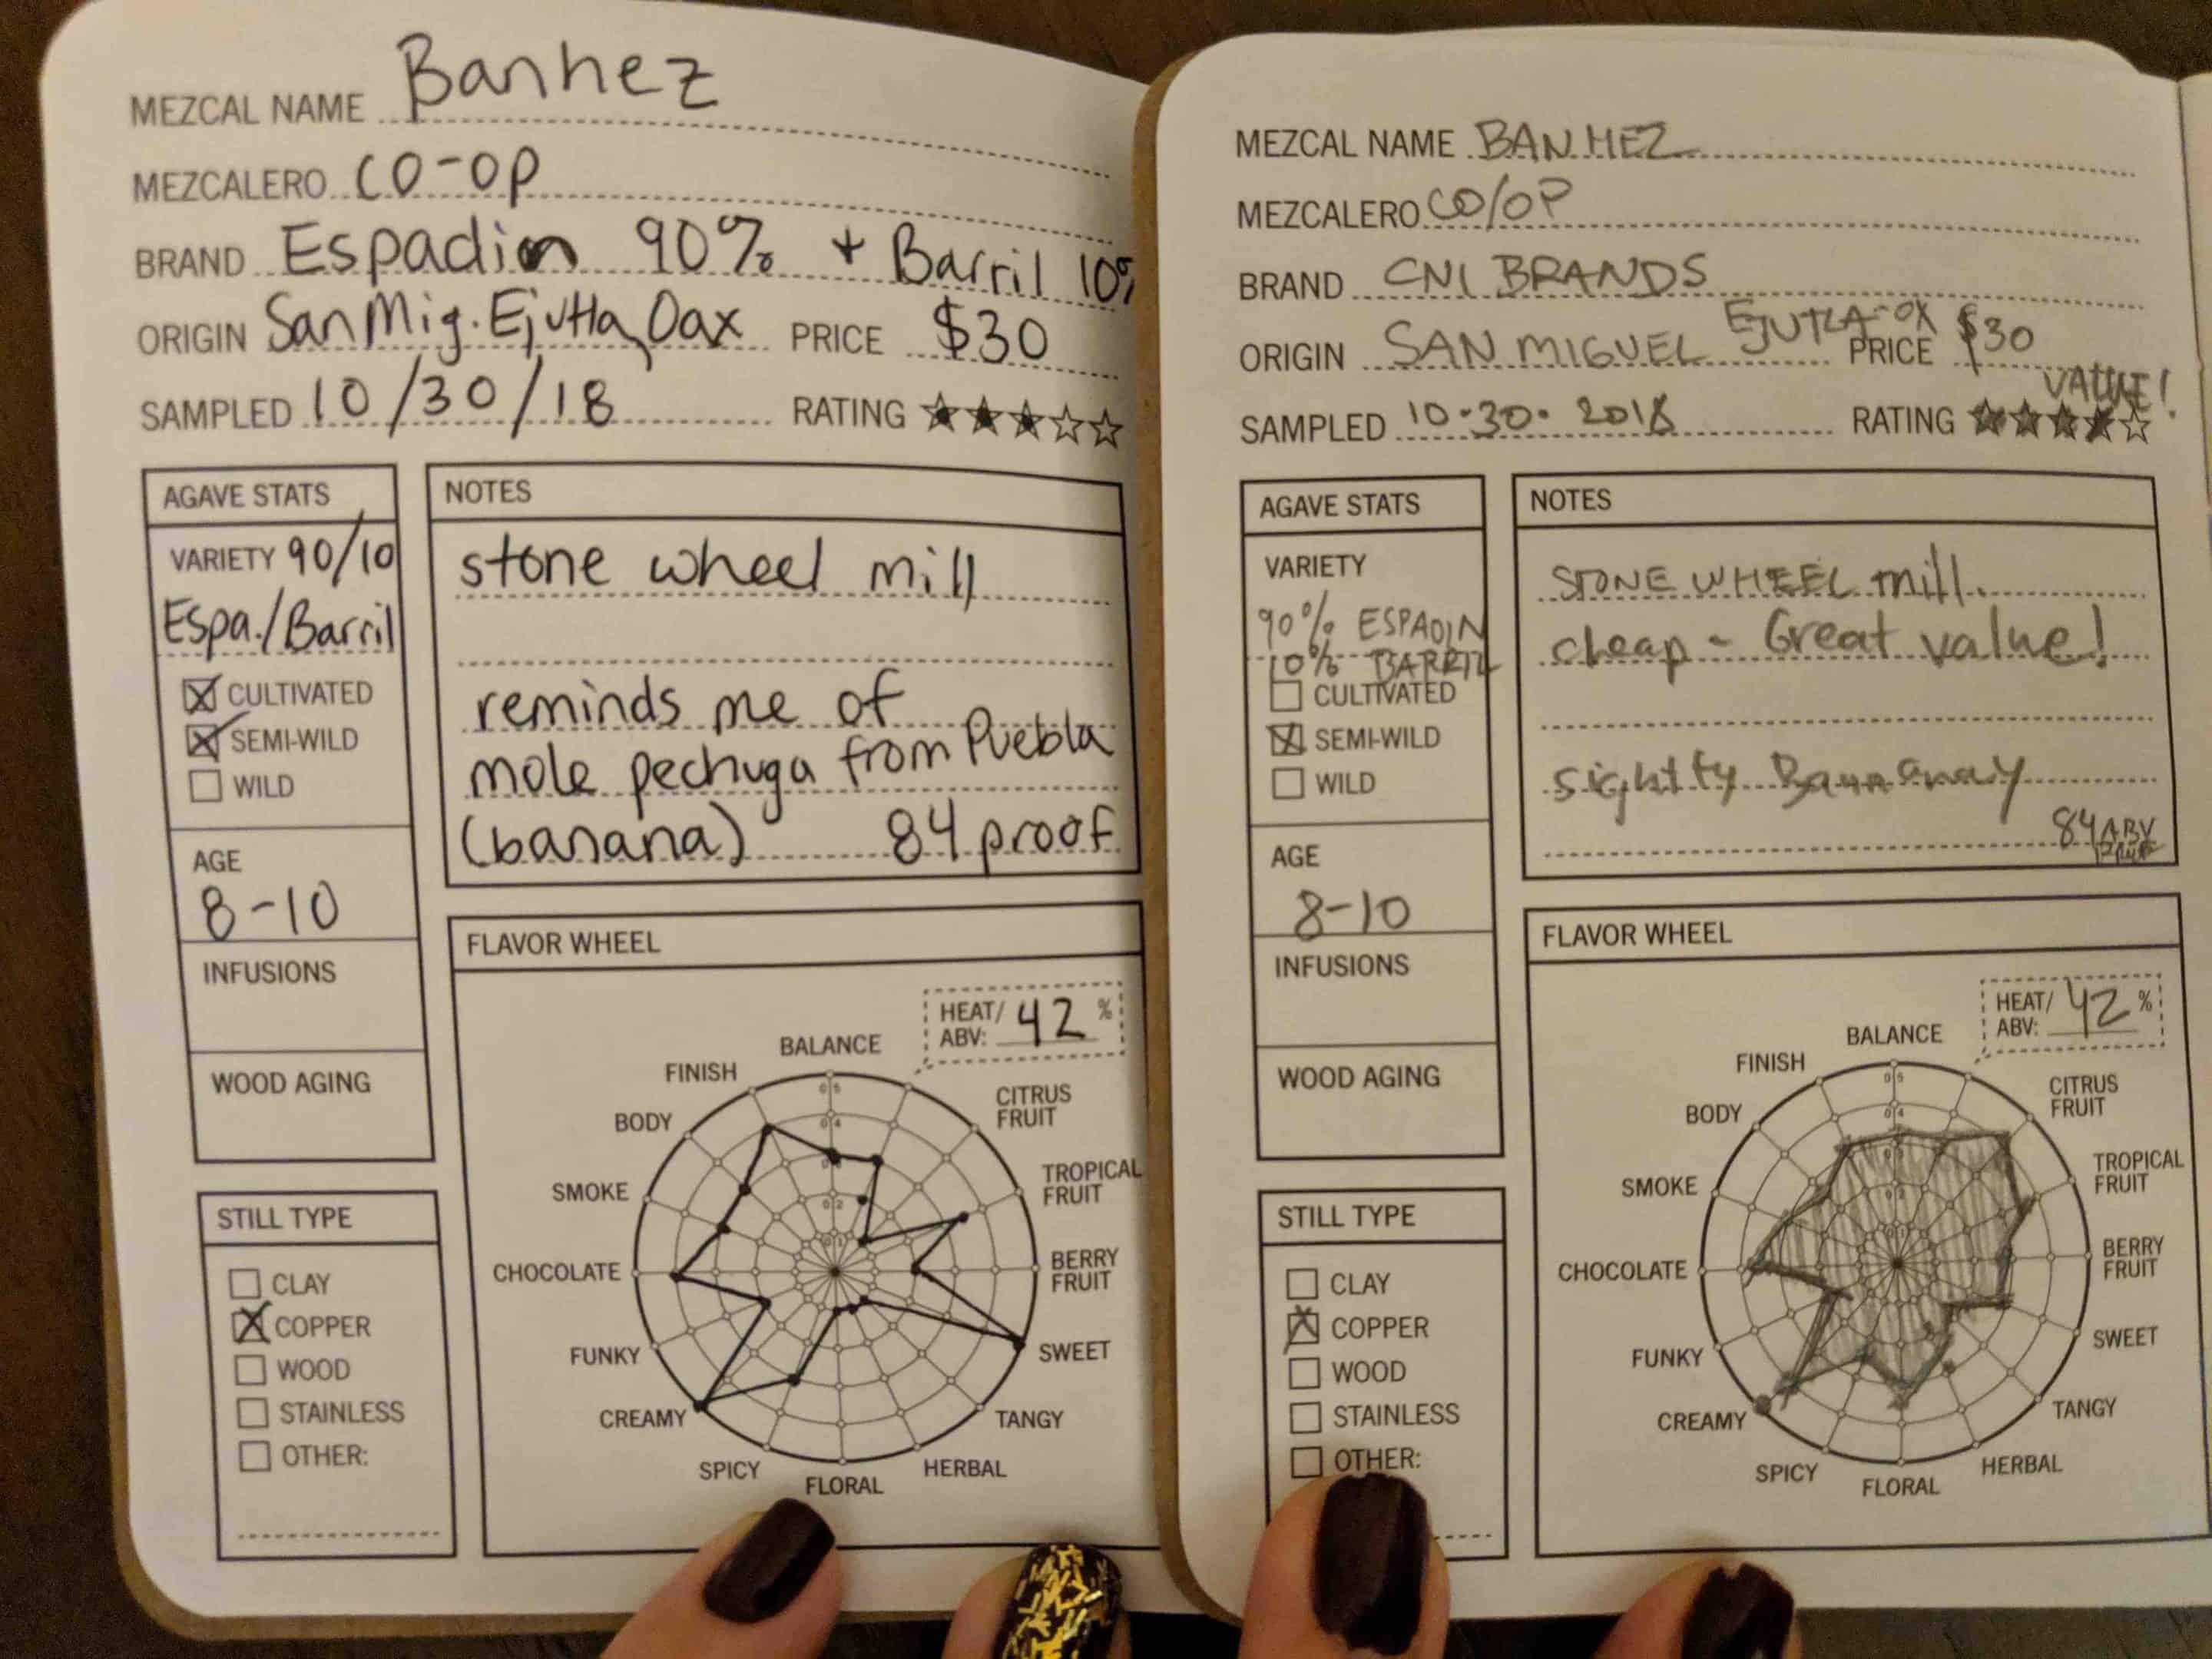 MEZCAL NAME Banhez
MEZCALERO CO-OP
BRAND Espadin 90% + Barril 10%
ORIGIN San Mig. Ejutla, Oax PRICE $30
SAMPLED 10/30/18 RATING
AGAVE STATS
VARIETY 90/10
Espa./Barril
CULTIVATED
SEMI-WILD
WILD
AGE
8-10
INFUSIONS
WOOD AGING
NOTES
stone wheel mill
reminds me of
mole pechuga from Puebla
(banana) 84 proof
STILL TYPE
CLAY
COPPER
WOOD
STAINLESS
OTHER:
FLAVOR WHEEL
HEAT/ 42 %
ABV:
BALANCE
CITRUS
FRUIT
TROPICAL
FRUIT
BERRY
FRUIT
SWEET
TANGY
HERBAL
FLORAL
SPICY
CREAMY
FUNKY
CHOCOLATE
SMOKE
BODY
FINISH
MEZCAL NAME BANHEZ
MEZCALERO CO/OP
BRAND CNI BRANDS
ORIGIN SAN MIGUEL EJUTLA-OX PRICE $30
VALUE!
SAMPLED 10-30-2018 RATING
AGAVE STATS
VARIETY
90% ESPADIN
10% BARRIL
CULTIVATED
SEMI-WILD
WILD
AGE
8-10
INFUSIONS
WOOD AGING
NOTES
STONE WHEEL mill.
cheap - Great value!
sightly Bananay
84 ABV
STILL TYPE
CLAY
COPPER
WOOD
STAINLESS
OTHER:
FLAVOR WHEEL
HEAT/ 42 %
ABV:
BALANCE
CITRUS
FRUIT
TROPICAL
FRUIT
BERRY
FRUIT
SWEET
TANGY
HERBAL
FLORAL
SPICY
CREAMY
FUNKY
CHOCOLATE
SMOKE
BODY
FINISH